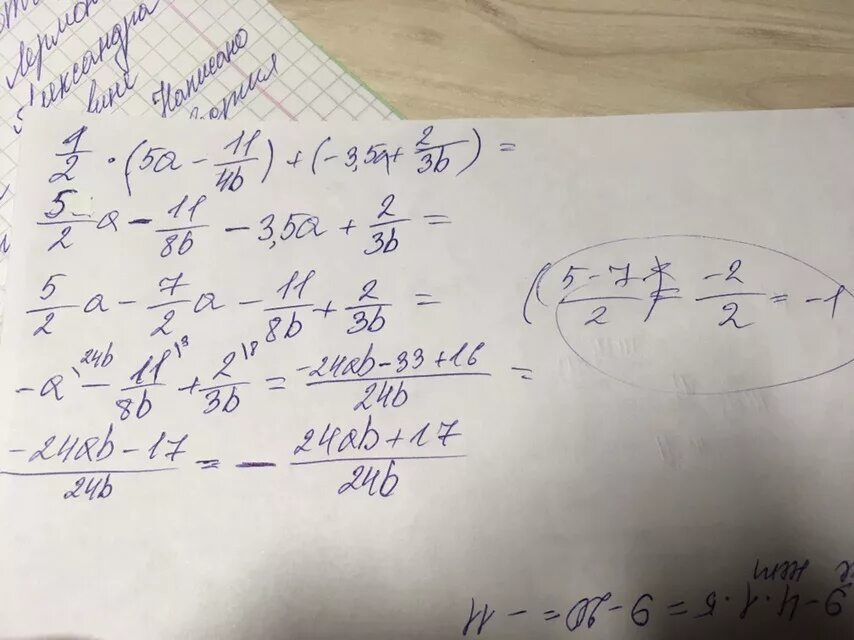 Александра
вши
Написано
1/2 · (5a − 11/4b) + (−3,5a + 2/3b) =
5/2 a − 11/8b − 3,5a + 2/3b =
5/2 a − 7/2 a − 11/8b + 2/3b =
(5−7/2) = −2/2 = −1
−a\24b − 11/8b \3 + 2/3b \8 = −24ab−33+16/24b =
−24ab−17/24b = − 24ab+17/24b
9−4·1·5=9−20=−11
нет